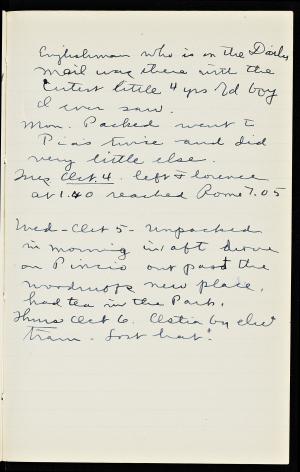 Englishman who is on the Daily
Mail was there with the
cutest little 4 yrs old boy
I ever saw.
Mon. Packed went to
Pias twice and did
very little else.
Tues Oct. 4. left Florence
at 1.40 reached Rome 7.05
Wed - Oct 5 - Unpacked
in morning in aft drove
on Pincio out past the
Woodruffs new place.
had tea in the Park.
Thurs Oct 6. Ostia by elec
tram. Lost hat.